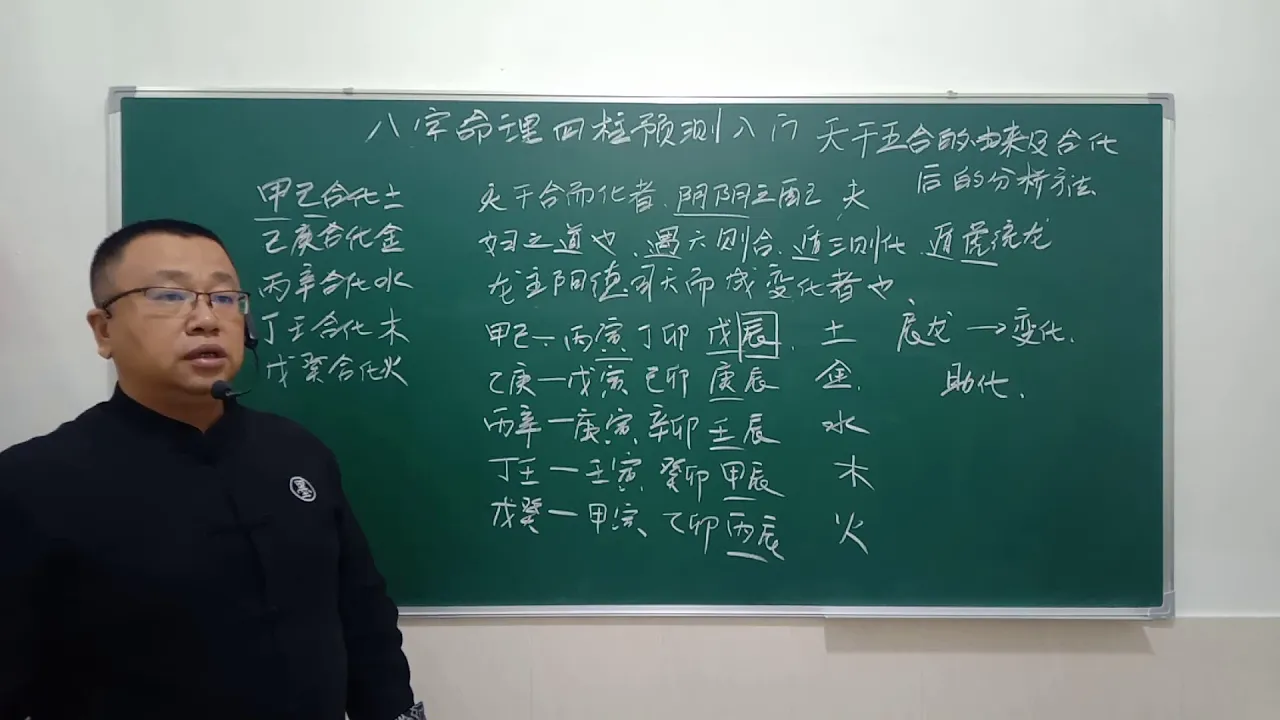 八字命理四柱预测入门 天干五合的由来及合化
后的分析方法
甲己合化土
乙庚合化金
丙辛合化水
丁壬合化木
戊癸合化火
天干合而化者、阴阳之配乙 夫
妇之道也、遇六则合、遁三则化、遁虎流龙
龙主阳德司天而成变化者也
甲己一丙寅 丁卯 戊辰、 土 辰龙→变化、
乙庚一戊寅 己卯 庚辰 金、 助化、
丙辛一庚寅 辛卯 壬辰 水
丁壬一壬寅 癸卯 甲辰 木
戊癸一甲寅 乙卯 丙辰 火